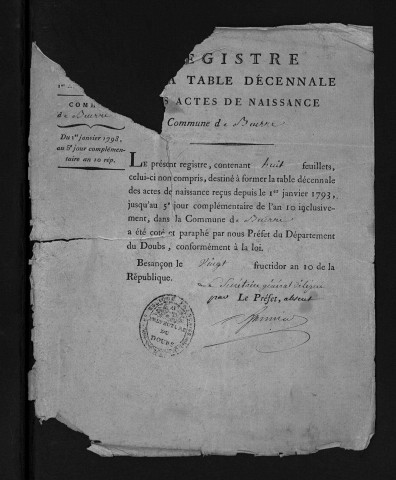 EGISTRE
A TABLE DÉCENNALE
S ACTES DE NAISSANCE
Commune de
COM
de
Du 1er janvier 1793,
au 5e jour complémen-
taire an 10 rép.
LE présent registre, contenant huit feuillets,
celui-ci non compris, destiné à former la table décennale
des actes de naissance reçus depuis le 1er janvier 1793,
jusqu'au 5e jour complémentaire de l'an 10 inclusive-
ment, dans la Commune de
a été coté et paraphé par nous Préfet du Département
du Doubs, conformément à la loi.
Besançon le Vingt fructidor an 10 de la
République.
Le Secrétaire général
pour Le Préfet, absent
DU
DOUBS